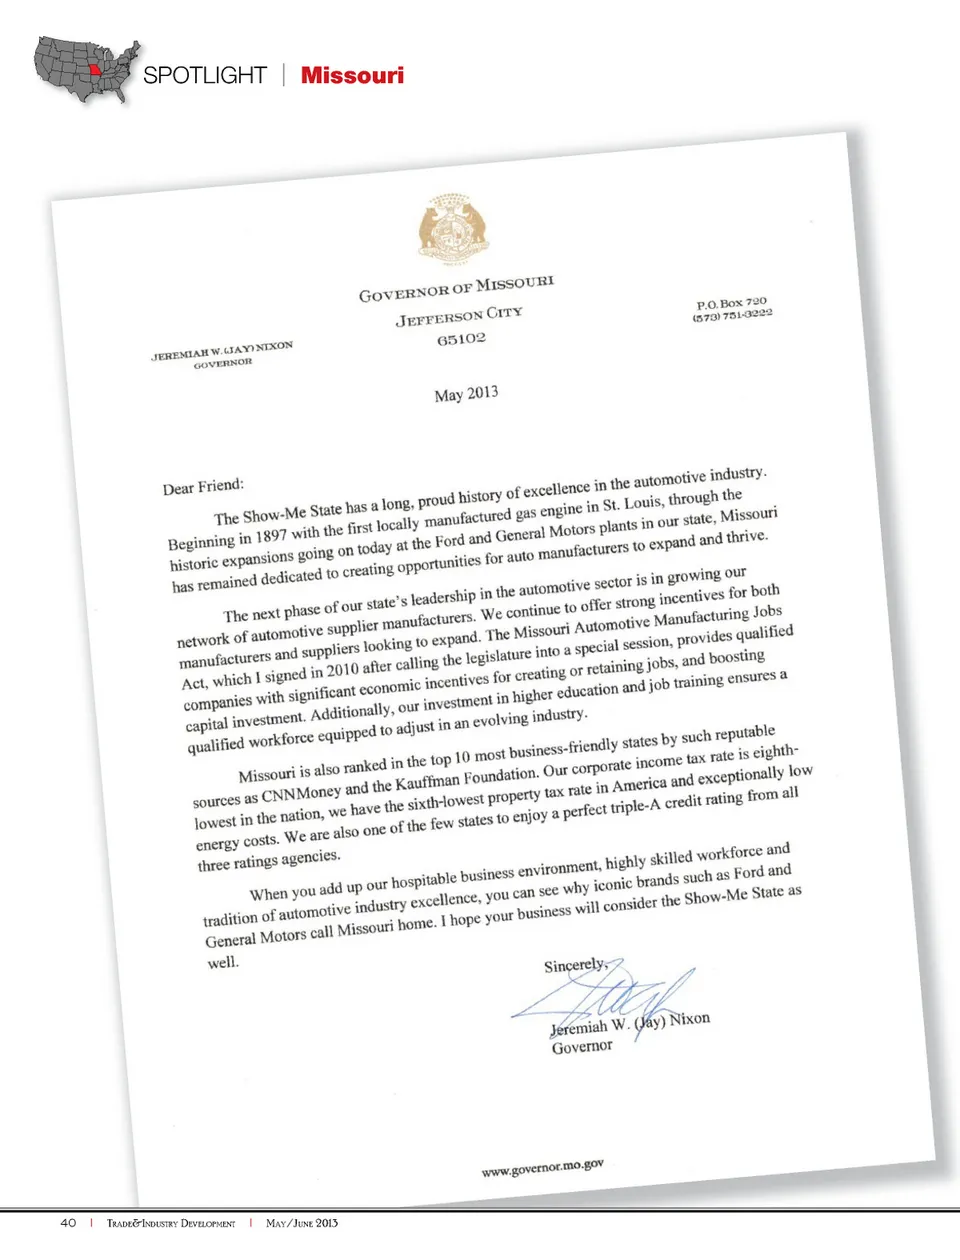 SPOTLIGHT | Missouri
GOVERNOR OF MISSOURI
JEFFERSON CITY
65102
P.O. BOX 720
(573) 751-3222
JEREMIAH W. (JAY) NIXON
GOVERNOR
May 2013
Dear Friend:
The Show-Me State has a long, proud history of excellence in the automotive industry.
Beginning in 1897 with the first locally manufactured gas engine in St. Louis, through the
historic expansions going on today at the Ford and General Motors plants in our state, Missouri
has remained dedicated to creating opportunities for auto manufacturers to expand and thrive.
The next phase of our state's leadership in the automotive sector is in growing our
network of automotive supplier manufacturers. We continue to offer strong incentives for both
manufacturers and suppliers looking to expand. The Missouri Automotive Manufacturing Jobs
Act, which I signed in 2010 after calling the legislature into a special session, provides qualified
companies with significant economic incentives for creating or retaining jobs, and boosting
capital investment. Additionally, our investment in higher education and job training ensures a
qualified workforce equipped to adjust in an evolving industry.
Missouri is also ranked in the top 10 most business-friendly states by such reputable
sources as CNNMoney and the Kauffman Foundation. Our corporate income tax rate is eighth-
lowest in the nation, we have the sixth-lowest property tax rate in America and exceptionally low
energy costs. We are also one of the few states to enjoy a perfect triple-A credit rating from all
three ratings agencies.
When you add up our hospitable business environment, highly skilled workforce and
tradition of automotive industry excellence, you can see why iconic brands such as Ford and
General Motors call Missouri home. I hope your business will consider the Show-Me State as
well.
Sincerely,
Jeremiah W. (Jay) Nixon
Governor
www.governor.mo.gov
40 | TRADE&INDUSTRY DEVELOPMENT | MAY/JUNE 2013